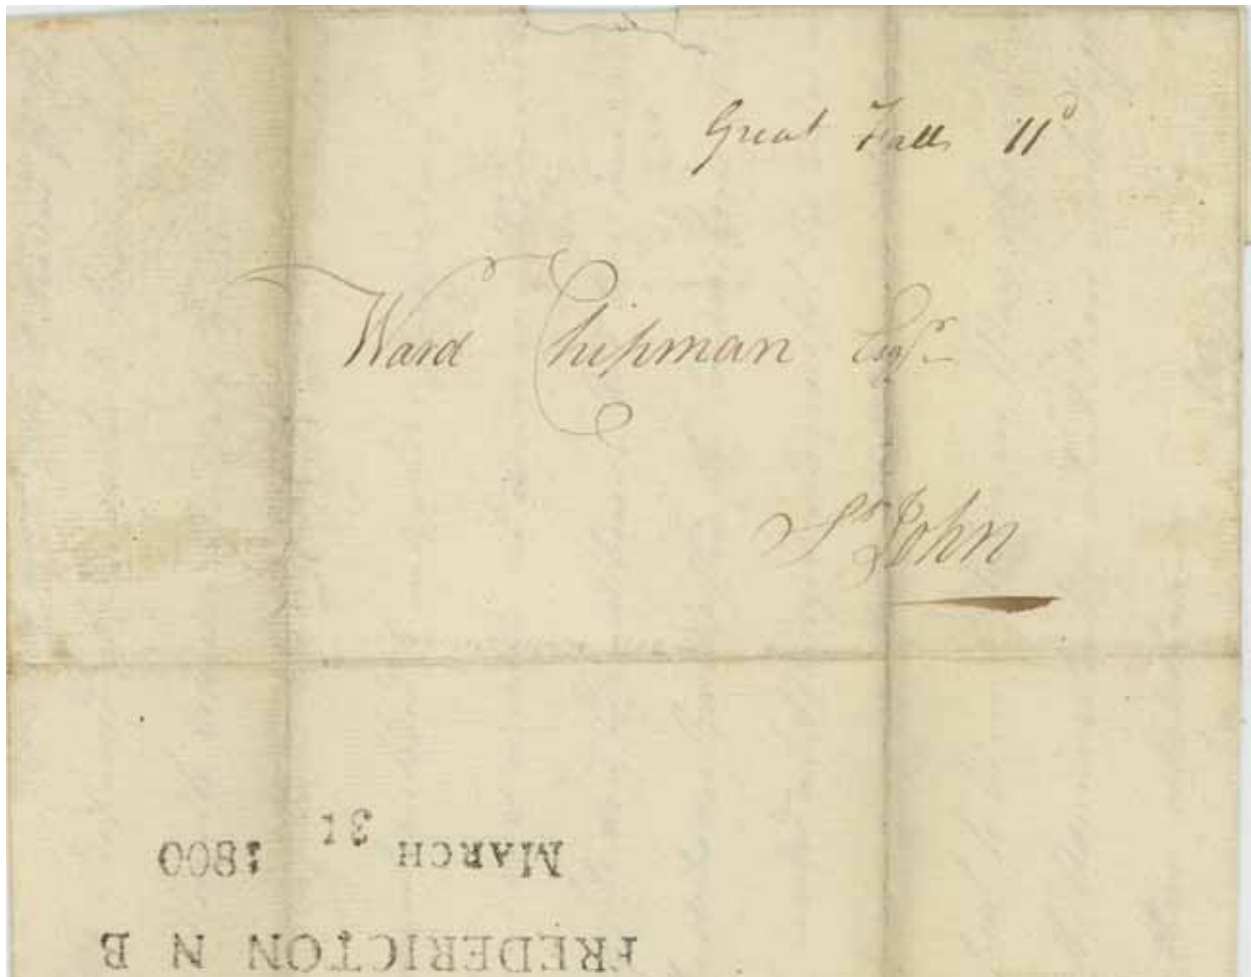 Great Falls 11d
Ward Chipman Esqr
St John
FREDERICTON N B
MARCH 31 1800